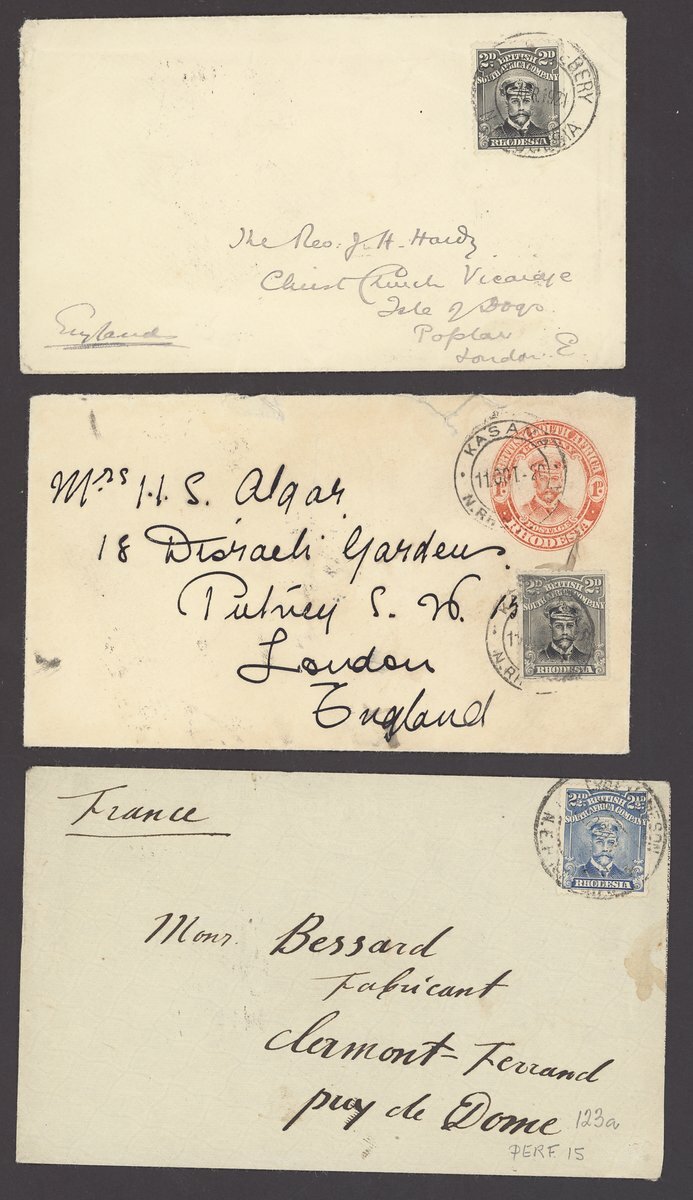 2D. BRITISH 2D.
SOUTH AFRICA COMPANY
RHODESIA
The Rev. J. H. Hardy
Christ Church Vicarage
Isle of Dogs
Poplar
London. E.
England
KASA
11 OCT. 2
N.RH
POSTAGE
RHODESIA
Mrs H. S. Algar
18 Disraeli Gardens.
Putney S. W. 15
London
England
2D. BRITISH 2D.
SOUTH AFRICA COMPANY
RHODESIA
N.RH
France
2½D. BRITISH 2½D.
SOUTH AFRICA COMPANY
RHODESIA
Monr. Bessard
Fabricant
Clermont-Ferrand
puy de Dome
123a
PERF. 15